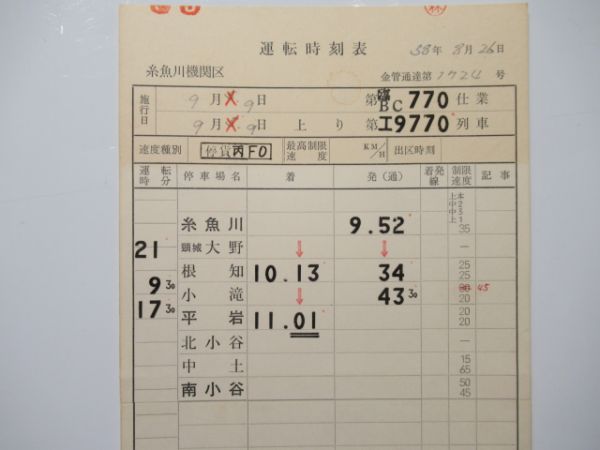 運転時刻表 38年 8月26日
糸魚川機関区 金管通達第1724号
施行日 9月9日 第BC770仕業
9月9日 上り 第工9770列車
速度種別 停貨丙F0 最高制限速度 KM/H 出区時刻
運転時分 停車場名 着 発(通) 着発線 制限速度 記事
糸魚川 9.52 35
21 頸城大野 ↓ ↓ —
根知 10.13 34 25 25
9 30 小滝 ↓ 43 30 30 20 45
17 30 平岩 11.01 20 20
北小谷 —
中土 15 65
南小谷 50 45